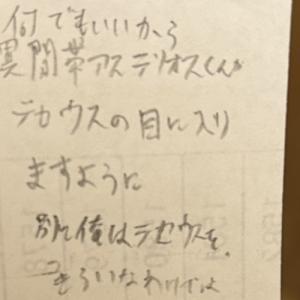 何でもいいから
異聞帯アステリオスくんが
テセウスの目に入り
ますように
別に俺はテセウスを
きらいなわけでは